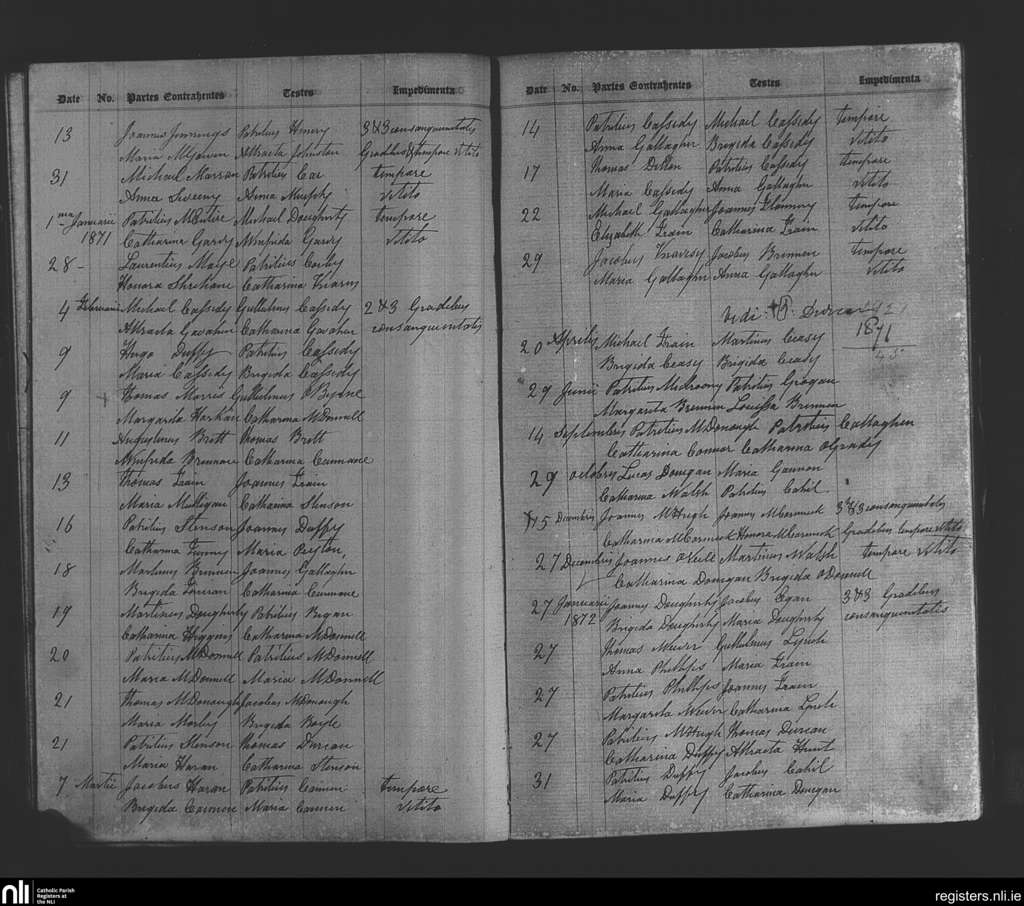 Date No. Partes Contrahentes Testes Impedimenta
13 Joannes Jennings Patritius Henery 3 & 3 consanguinitatis
Maria Attracta Johnston Gradibus & tempore vetito
31 Michael Marron Patritius Cox tempore
Anna Sweeny Anna Murphy vetito
1ma Januarii Patritius McEntire Michael Dougherty tempore
1871 Catharina Garvy Winifrida Garvy vetito
28 - Laurentius Patritius Conly
Honora Shrehane Catharina Kearns
4 Februarii Michael Cassedy Gullielmus Cassedy 2 & 3 Gradibus
Attracta Gavahan Catharina Gavahan consanguinitatis
9 Hugo Duffy Patritius Cassedy
Maria Cassedy Brigida Cassedy
9 Thomas Morris Gullielmus O'Byrne
Margarita Harkan Catharina McDonnell
11 Augustinus Brett Thomas Brett
Winifrida Brennan Catharina Cunnane
13 Thomas Frain Joannes Frain
Maria Mulligan Catharina Stenson
16 Patritius Stenson Joannes Duffy
Catharina Maria Peyton
18 Martinus Brennan Joannes Gallagher
Brigida Catharina Cunnane
19 Martinus Dougherty Patritius Regan
Catharina Higgins Catharina McDonnell
20 Patritius McDonnell Patritius McDonnell
Maria McDonnell Maria McDonnell
21 Thomas McDonough Jacobus McDonough
Maria Morley Brigida Boyle
21 Patritius Stenson Thomas Durcan
Maria Haran Catharina Stenson
7 Martii Jacobus Haran Patritius tempore
Brigida Maria vetito
Date No. Partes Contrahentes Testes Impedimenta
14 Patritius Cassedy Michael Cassedy tempore
Anna Gallagher Brigida Cassedy vetito
17 Thomas Dillon Patritius Cassedy tempore
Maria Cassedy Anna Gallagher vetito
22 Michael Gallagher Joannes Flannery tempore
Elizabeth Frain Catharina Frain vetito
29 Jacobus Jacobus Brennan tempore
Maria Gallagher Anna Gallagher vetito
Vidi P. Durcan
1871
20 Aprilis Michael Frain Martinus Ceasy
Brigida Ceasy Brigida Ceasy
29 Junii Patritius Patritius Grogan
Margarita Brennan Louissa Brennan
14 Septembris Patritius McDonough Patritius Callaghan
Catharina Connor Catharina O'Grady
29 Octobris Lucas Donegan Maria Gannon
Catharina Walsh Patritius Cahil
15 Decembris Joannes McHugh Joannes McCormick 3 & 3 consanguinitatis
Catharina McCormick Honora McCormick Gradibus tempore vetito
27 Decembris Joannes O'Neill Martinus Walsh tempore vetito
Catharina Donegan Brigida O'Donnell
27 Januarii Joannes Dougherty Jacobus Egan 3 & 3 Gradibus
1872 Brigida Dougherty Maria Dougherty consanguinitatis
27 Thomas Gullielmus Lynch
Anna Phillips Maria Frain
27 Patritius Phillips Joannes Frain
Margarita Catharina Lynch
27 Patritius McHugh Thomas Durcan
Catharina Duffy Attracta Hunt
31 Patritius Duffy Jacobus Cahil
Maria Duffy Catharina Donegan
nli Catholic Parish
Registers at
the NLI
registers.nli.ie